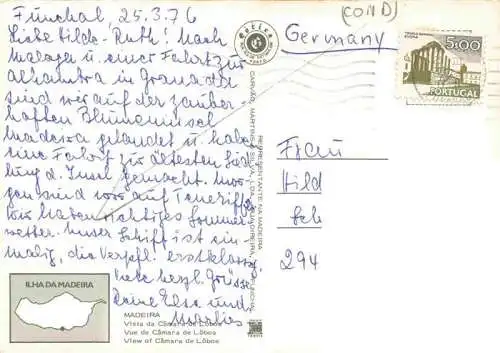 Funchal, 25.3.76
Liebe Hilde-Ruth! Nach
Malaga u. einer Fahrt zur
Alhambra in Granada
sind wir auf der zauber-
haften Blumeninsel
Madeira gelandet u. haben
eine Fahrt zur ältesten Sied-
lung d. Insel gemacht. Mor-
gen sind wir auf Teneriffa.
Wir haben richtiges Sommer-
wetter. Unser Schiff ist ein-
malig, die Verpfl. erstklassig.
Viele herzl. Grüsse
Deine Elsa und
Marlies
(COND)
Germany
5$00
PORTUGAL
Frau
Hild
Sch
294
ILHA DA MADEIRA
MADEIRA
Vista da Câmara de Lôbos
Vue de Câmara de Lôbos
View of Câmara de Lôbos
REPRESENTANTE NA MADEIRA